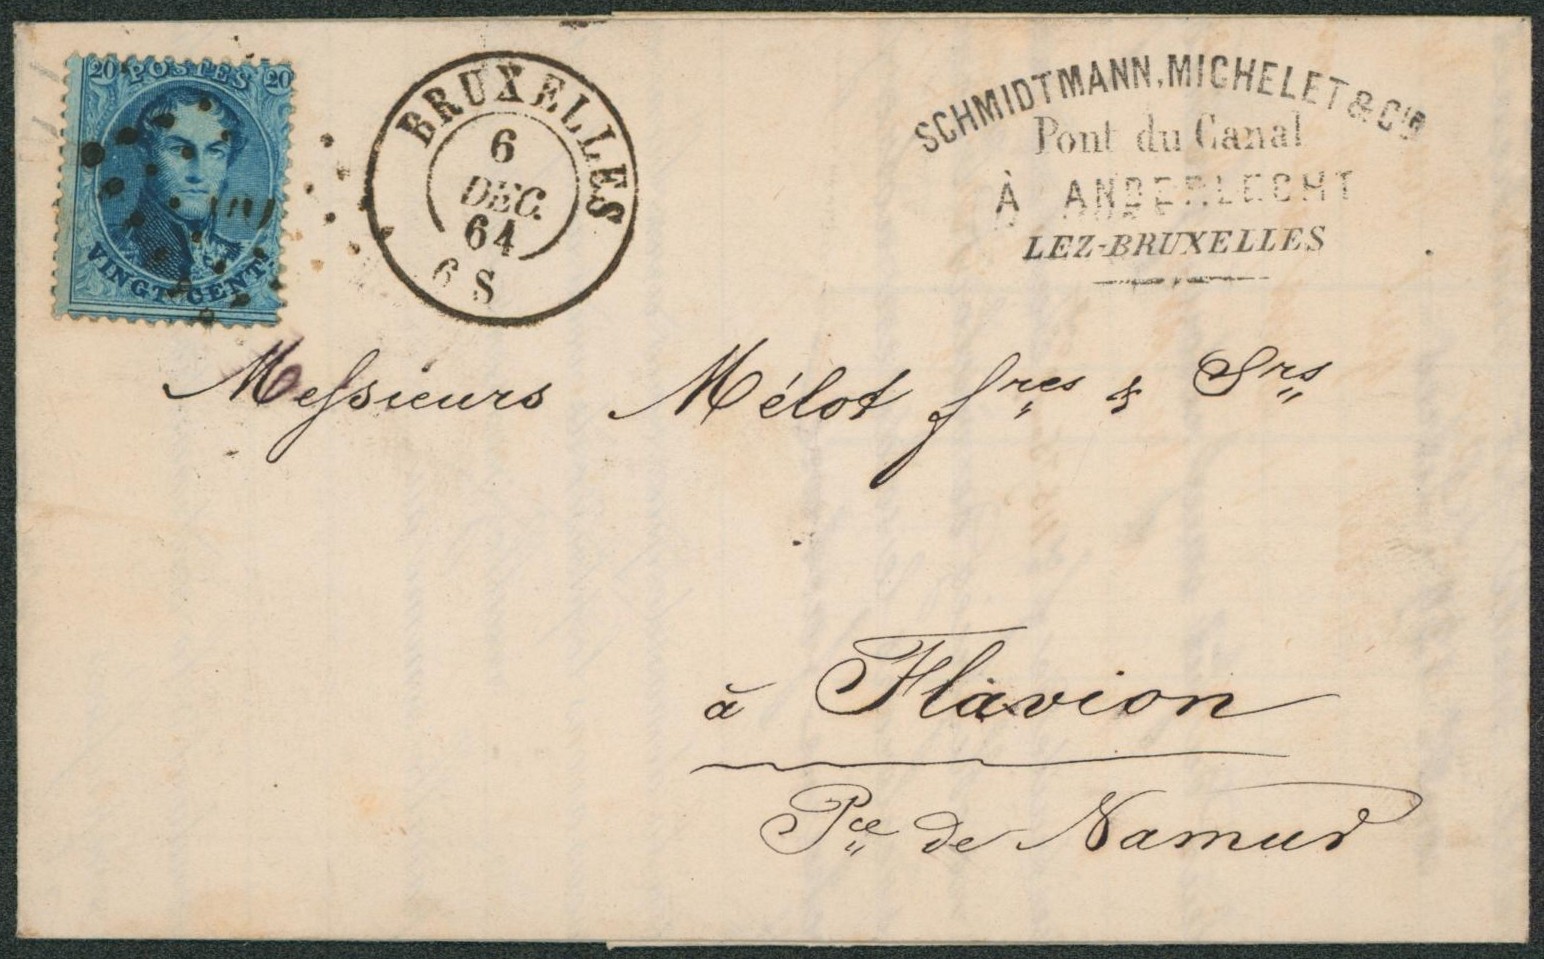 20 POSTES 20
VINGT CENT.
BRUXELLES
6
DEC.
64
6 S
SCHMIDTMANN, MICHELET & Cie
Pont du Canal
À ANDERLECHT
LEZ-BRUXELLES
Messieurs Mélot fres & Srs
à Flavion
Pce de Namur